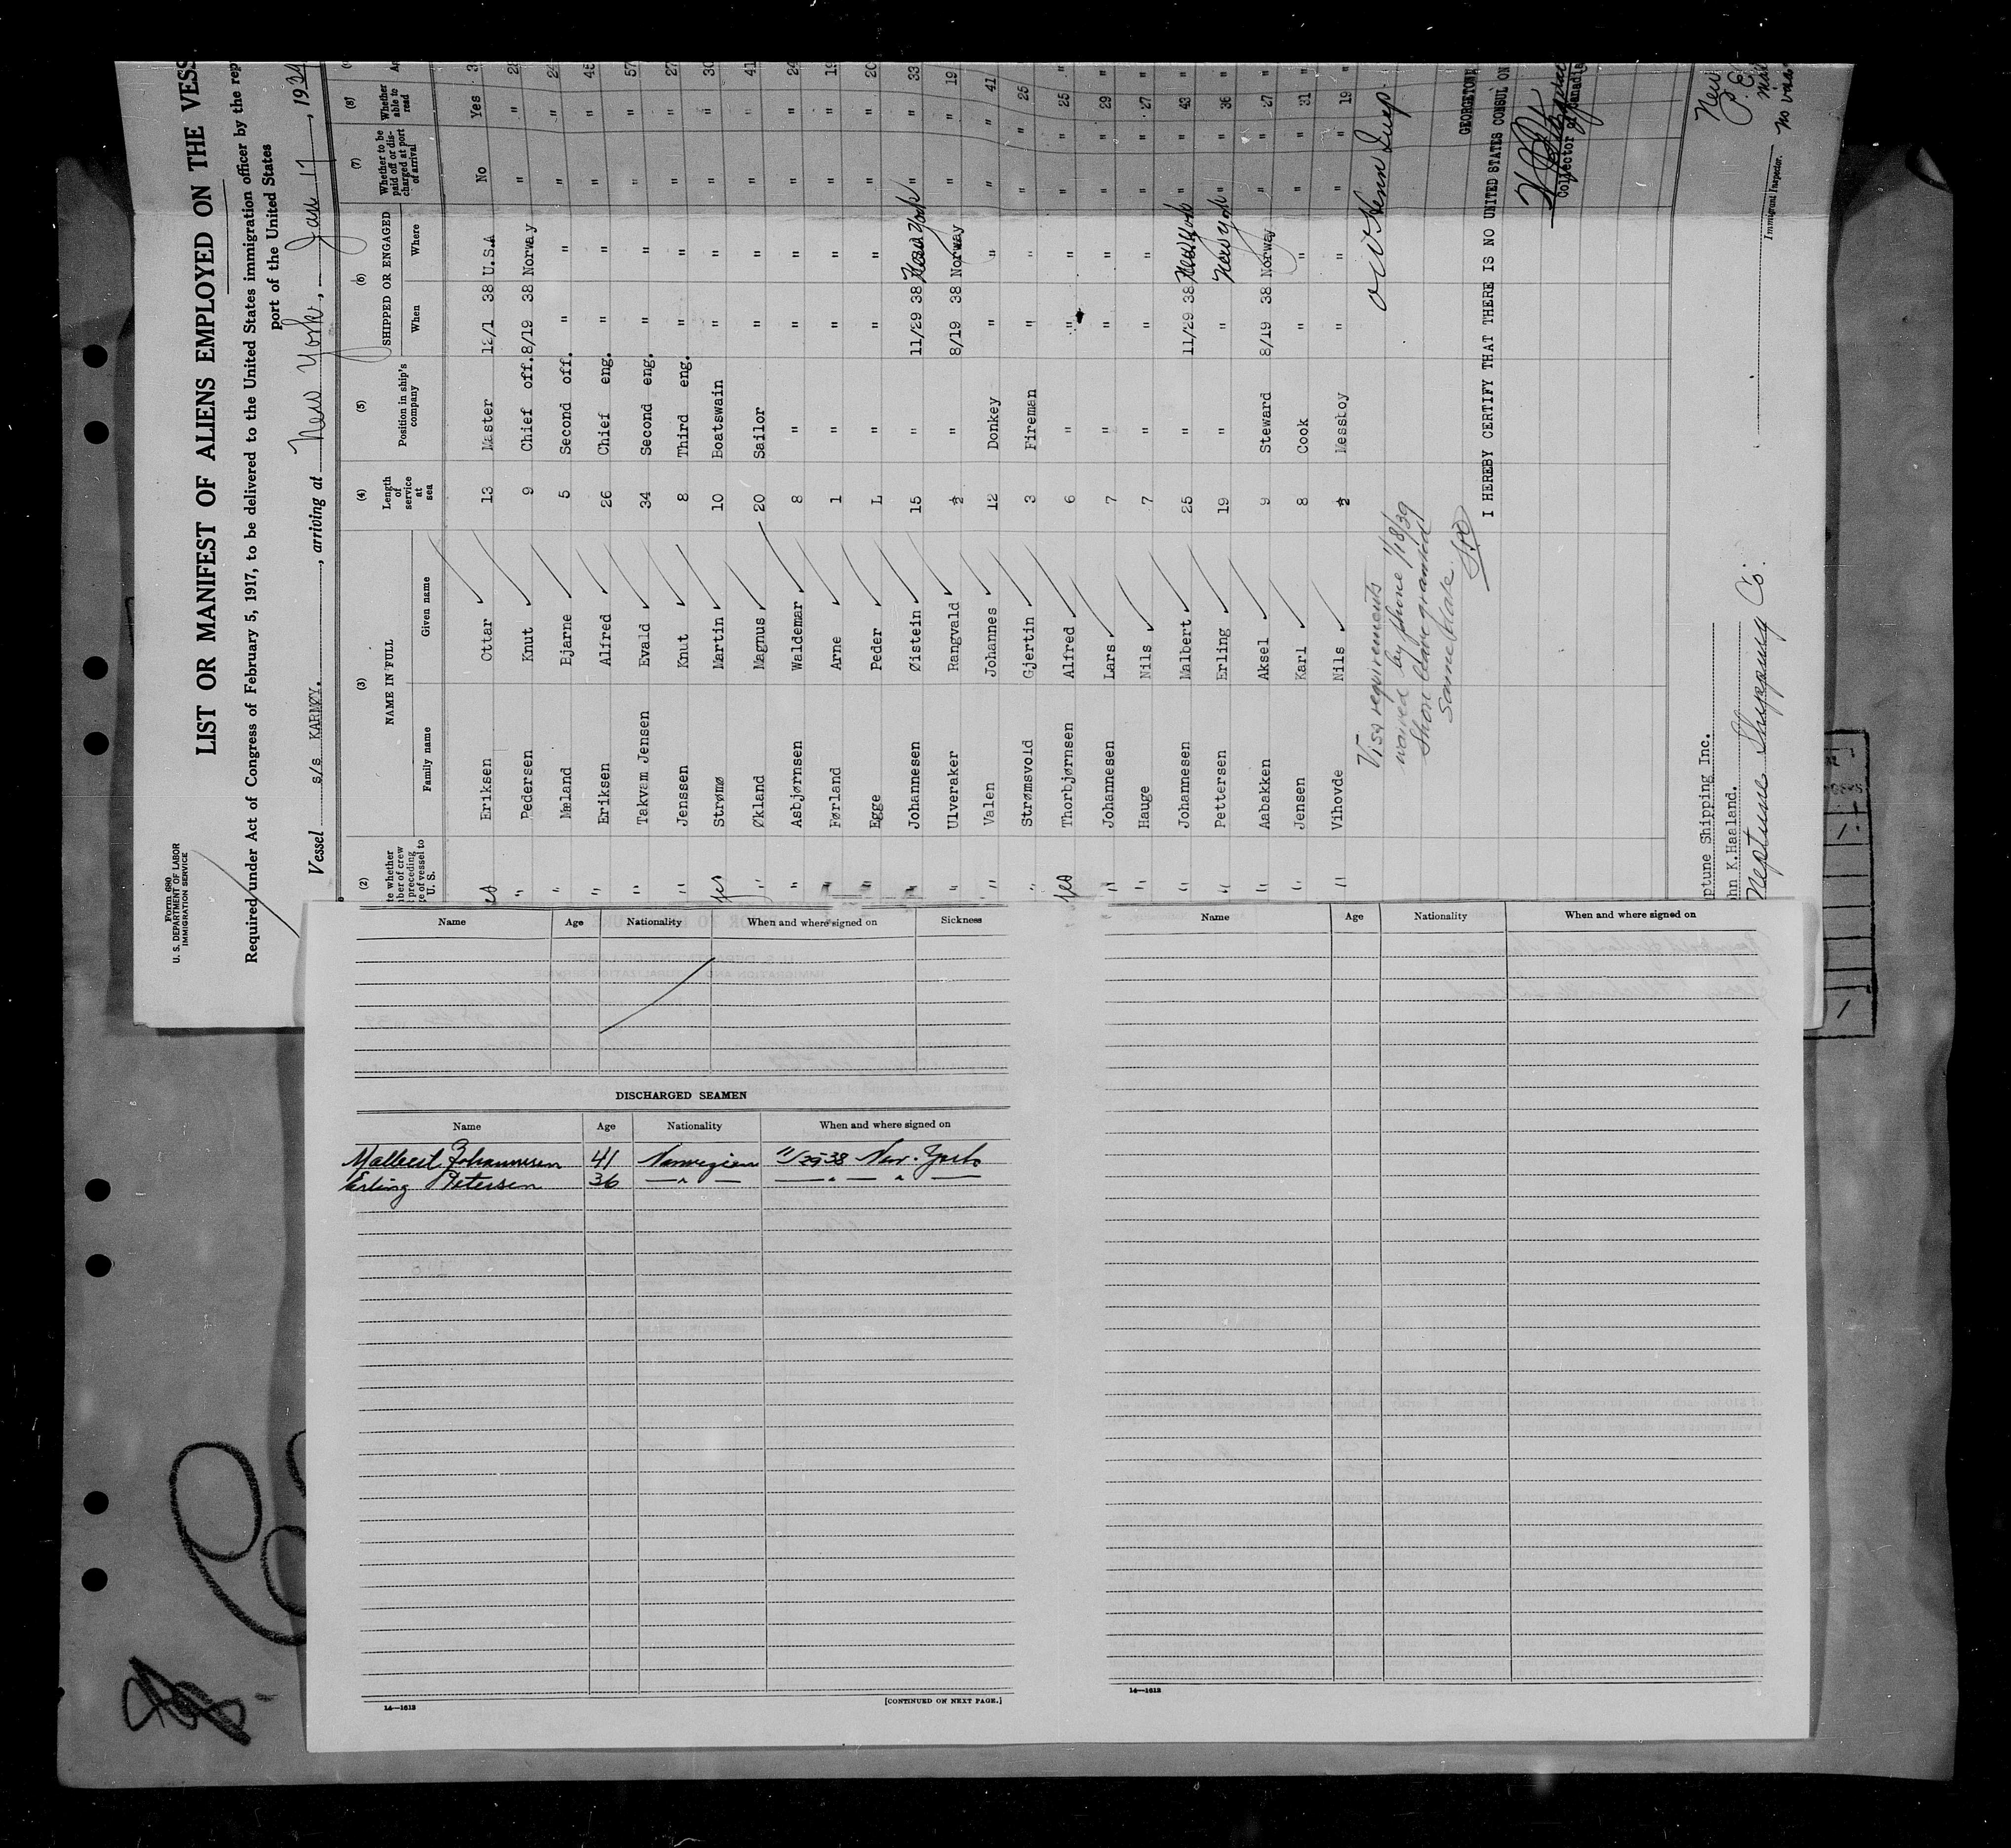 Form 680
U. S. DEPARTMENT OF LABOR
IMMIGRATION SERVICE
LIST OR MANIFEST OF ALIENS EMPLOYED ON THE VESS
Required under Act of Congress of February 5, 1917, to be delivered to the United States immigration officer by the rep
port of the United States
Vessel s/s KARMØY. , arriving at New York, Jan 17 , 193
(2) (3) (4) (5) (6) (7) (8)
e whether ber of crew preceding e of vessel to U. S. NAME IN FULL Length of service at sea Position in ship's company SHIPPED OR ENGAGED Whether to be paid off or discharged at port of arrival Whether able to read
Family name Given name When Where
Eriksen Ottar 13 Master 12/1 38 U.S.A No Yes 3
" Pedersen Knut 9 Chief off. 8/19 38 Norway " " 2
" Mæland Bjarne 5 Second off. " " " " 24
" Eriksen Alfred 26 Chief eng. " " " " 45
" Takvam Jensen Evald 34 Second eng. " " " " 57
" Jenssen Knut 8 Third eng. " " " " 27
yes Strømø Martin 10 Boatswain " " " " 30
" Økland Magnus 20 Sailor " " " " 41
" Asbjørnsen Waldemar 8 " " " " " 24
Førland Arne 1 " " " " " 19
Egge Peder L " " " " " 20
Johannesen Øistein 15 " 11/29 38 New York " " 33
" Ulvereaker Rangvald ½ " 8/19 38 Norway " " 19
" Valen Johannes 12 Donkey " " " " 41
" Strømsvold Gjertin 3 Fireman " " " " 25
yes Thorbjørnsen Alfred 6 " " " " " 25
" Johannesen Lars 7 " " " " " 29
" Hauge Nils 7 " " " " " 27
" Johannesen Malbert 25 " 11/29 38 New York " " 43
" Pettersen Erling 19 " " New York " " 36
" Aabakken Aksel 9 Steward 8/19 38 Norway " " 27
" Jensen Karl 8 Cook " " " " 31
" Vihovde Nils ½ Messboy " " " " 19
Visa requirements
waived by phone 1/18/39
Shore leave granted
same date.
GEORGETOWN
I HEREBY CERTIFY THAT THERE IS NO UNITED STATES CONSUL ON
Collector of
Immigrant Inspector.
New
ptune Shipping Inc.
hn K.Haaland.
Neptune Shipping Co.
Name Age Nationality When and where signed on Sickness
DISCHARGED SEAMEN
Name Age Nationality When and where signed on
Malbert Johannesen 41 Norwegian 11/29-38 New-York
Erling Petersen 36 " " "
14—1612 [CONTINUED ON NEXT PAGE.]
Name Age Nationality When and where signed on
14—1612